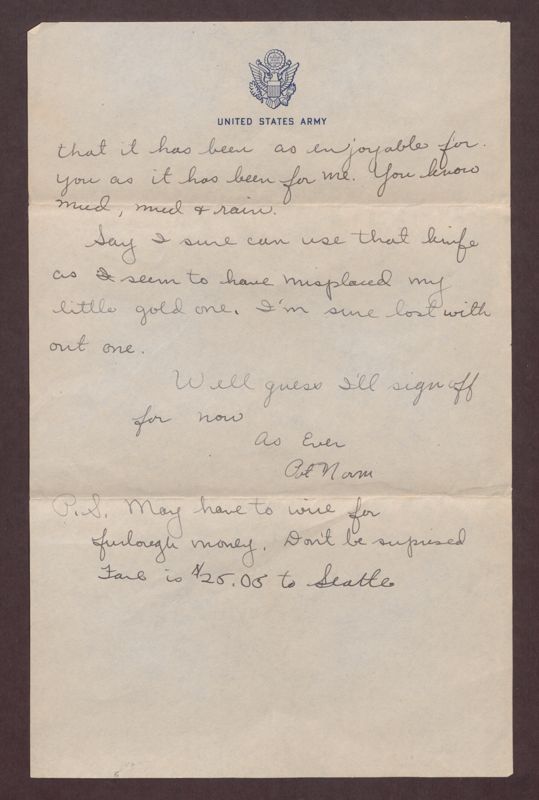 UNITED STATES ARMY
that it has been as enjoyable for
you as it has been for me. You know
mud, mud & rain.
Say I sure can use that knife
as I seem to have misplaced my
little gold one. I'm sure lost with
out one.
Well guess I'll sign off
for now
As Ever
Pvt Norm
P.S. May have to wire for
furlough money. Don't be suprised
Fare is $25.05 to Seattle